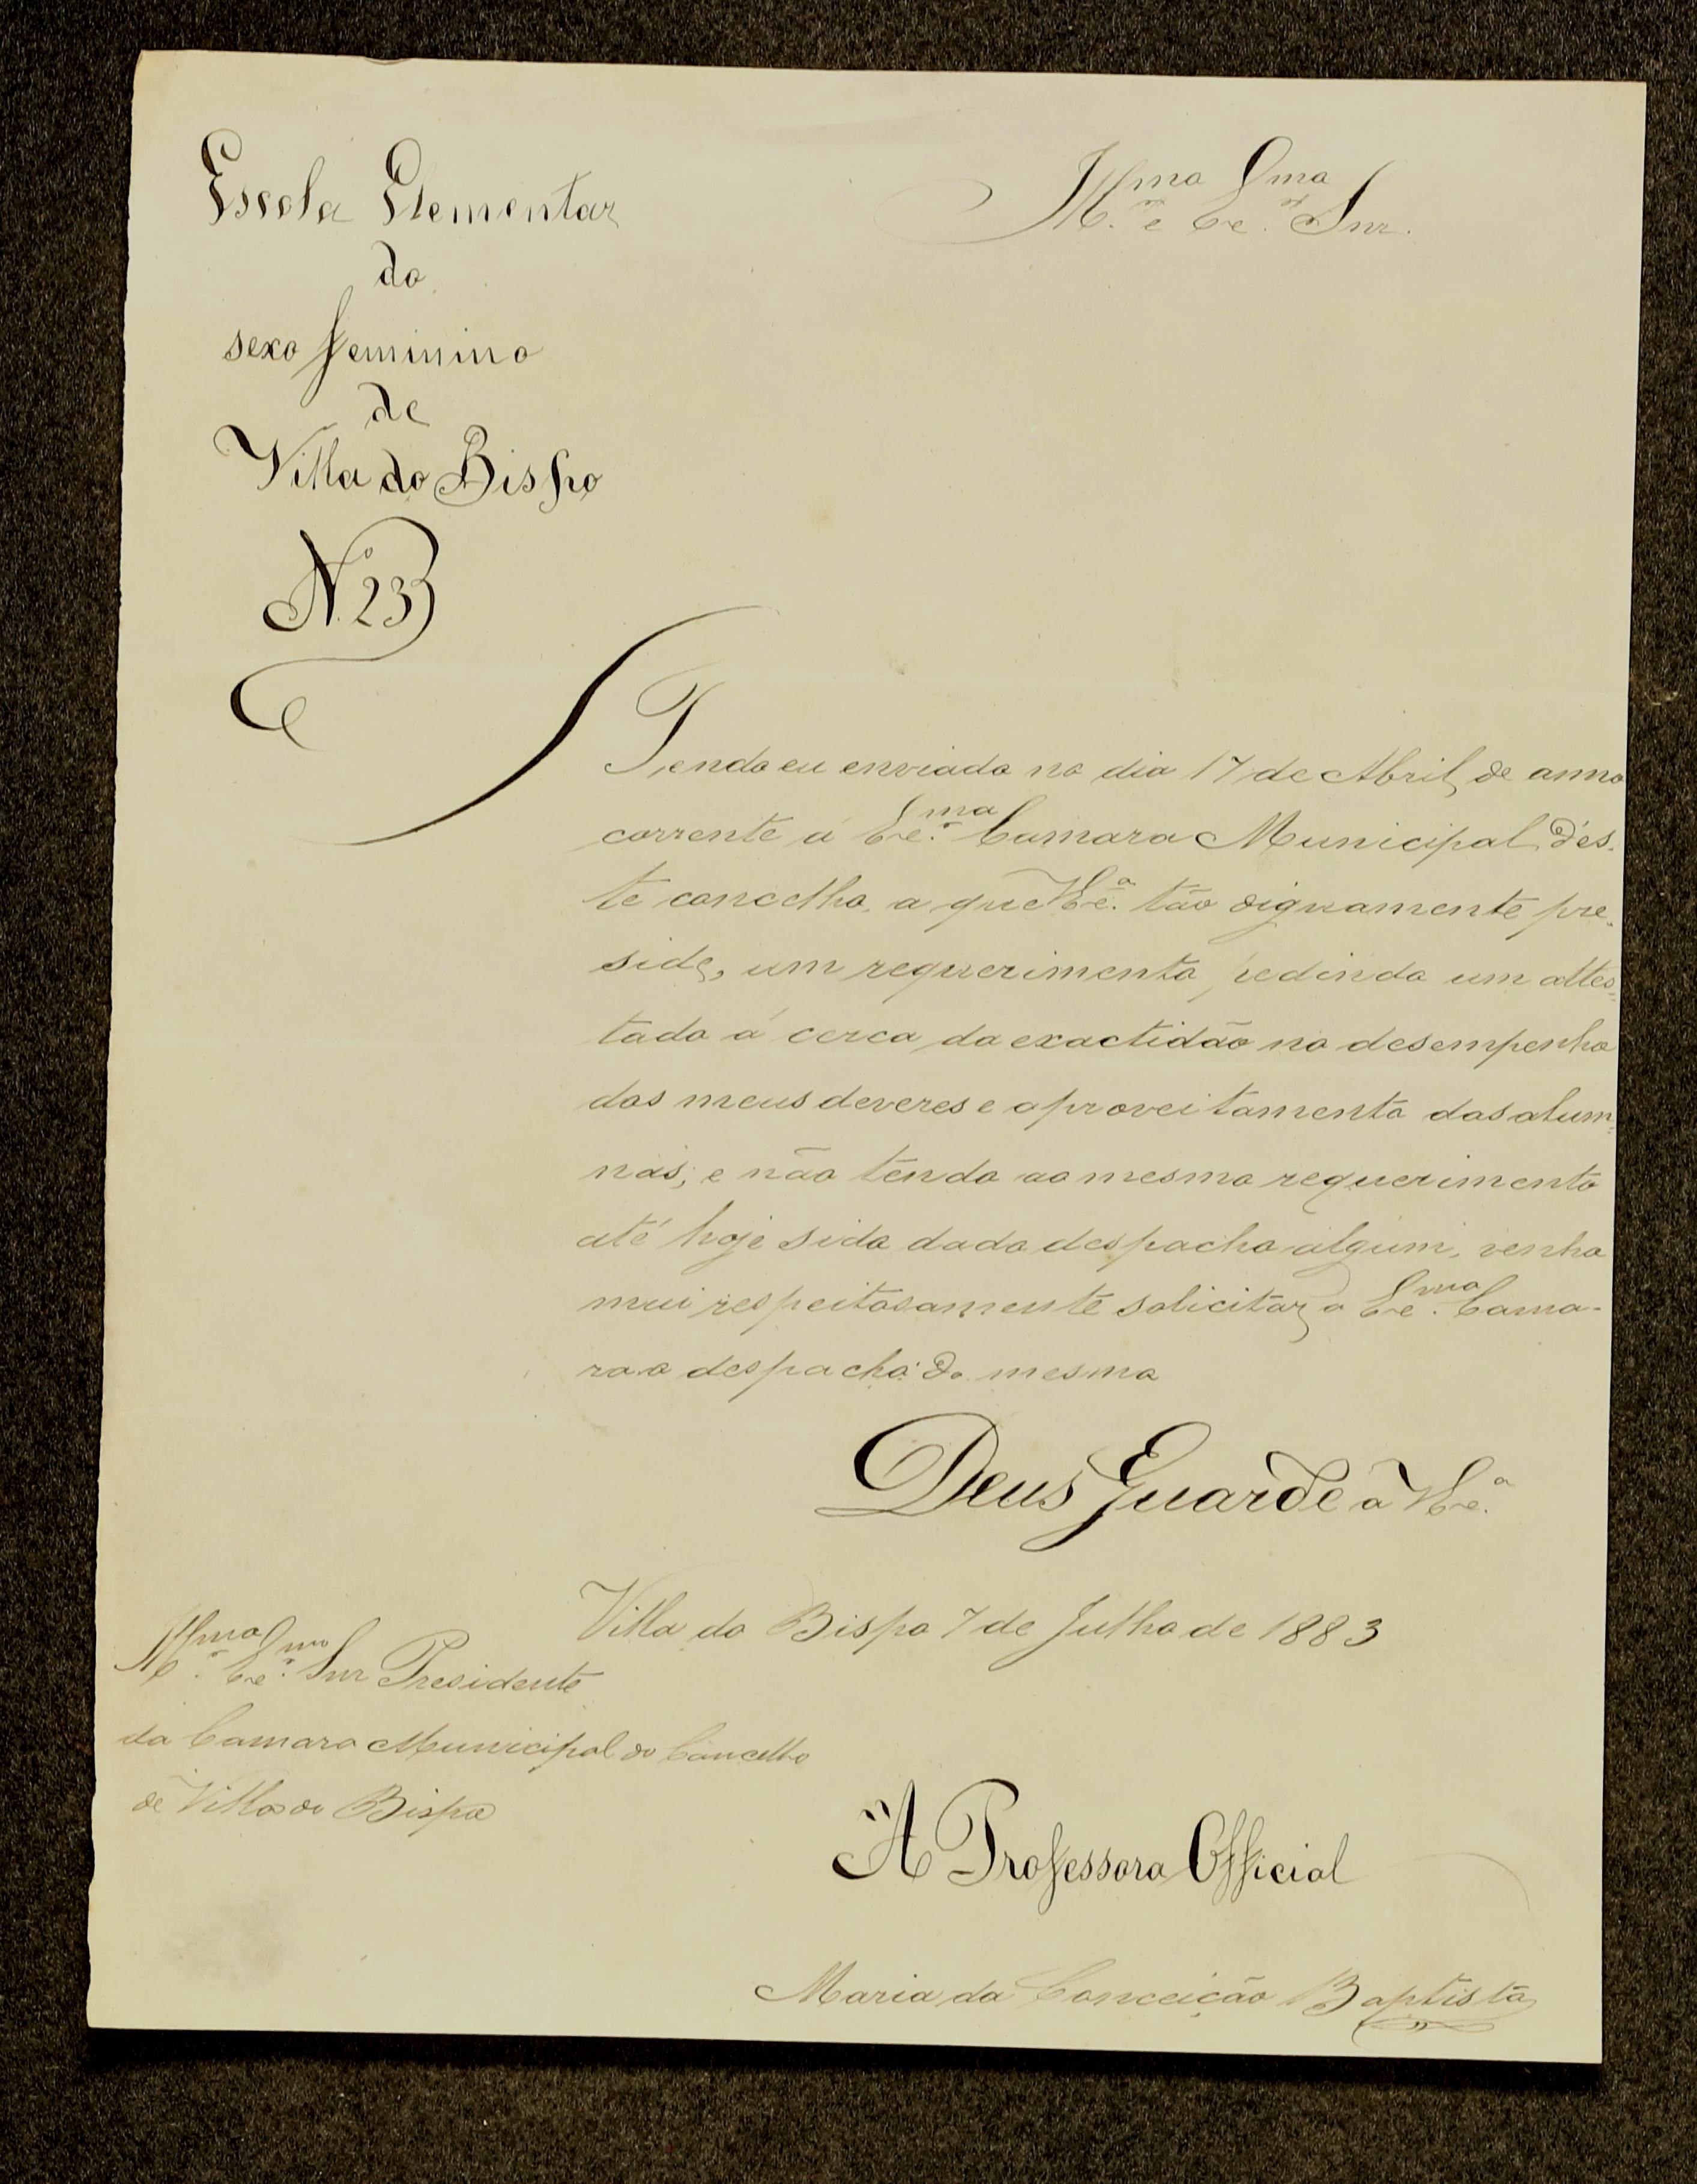 Escola Elementar
do
sexo feminino
de
Villa do Bispo
N.º 23
Ill.mo e Ex.mo Snr.
Tendo eu enviado no dia 17 de Abril, de anno
corrente á Ex.ma Camara Municipal d'es-
te concelho, a que V.Ex.ª tão dignamente pre-
side, um requerimento, pedindo um attes-
tado á cerca da exactidão no desempenho
dos meus deveres e aproveitamento das alum-
nas; e não tendo ao mesmo requerimento
até hoje sido dado despacho algum, venho
mui respeitosamente solicitar, a Ex.ma Cama-
ra o despacho do mesmo
Deus Guarde a V.Ex.ª
Villa do Bispo 7 de Julho de 1883
Ill.mo Ex.mo Snr Presidente
da Camara Municipal do Concelho
de Villa do Bispo
A Professora Official
Maria da Conceição Baptista